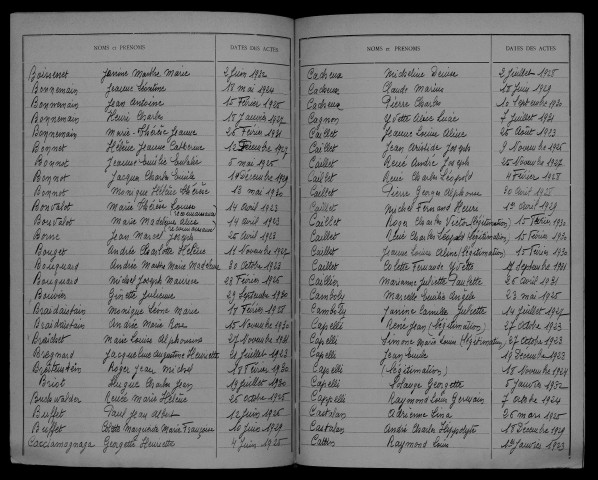 NOMS et PRÉNOMS DATES DES ACTES
Boissenot Jeanne Marthe Marie 2 Juin 1932
Bonnemain Jeanne 18 mai 1924
Bonnemain Jean Antoine 15 Février 1925
Bonnemain Henri Charles 15 Janvier 1927
Bonnemain Marie-Thérèse Jeanne 26 Février 1931
Bonnet Hélène Jeanne Catherine 12 Décembre 1927
Bonnet Jeanne Emilie Eulalie 5 mai 1925
Bonnet Jacques Charles Emile 1 Décembre 1929
Bonnet Monique Hélène Thérèse 13 mai 1930
Bonvalot Marie Thérèse Louise 14 Avril 1923
Bonvalot Marie Madeleine Alice 14 Avril 1923
Borne Jean Marcel Joseph 25 Avril 1923
Bouget Andrée Charlotte Hélène 11 Novembre 1927
Bouquard Andrée Marthe Marie Madeleine 30 Octobre 1923
Bouquard Michel Joseph Maurice 28 Février 1925
Bouvier Ginette Julienne 29 Septembre 1930
Braidastain Monique Léone Marie 17 Février 1925
Braidastain Andrée Marie Rose 15 Novembre 1930
Braichet Marie Louise Alphonsine 27 Novembre 1931
Bregnard Jacqueline Augustine Henriette 21 Juillet 1923
Roger Jean Michel 18 Février 1930
Briot Hugues Charles Jean 14 Juillet 1930
Buchwalder Renée Marie Hélène 26 Octobre 1925
Buffet Paul Jean Albert 12 Juin 1926
Buffet Colette Marguerite Marie Françoise 10 Juin 1929
Cacciamognaga Georgette Henriette 4 Juin 1925
NOMS et PRÉNOMS DATES DES ACTES
Cacheux Micheline Denise 2 Juillet 1925
Cacheux Claude Marius 15 Juin 1929
Cacheux Pierre Charles 10 Septembre 1930
Cagnon Yvette Alice Lucie 7 Juillet 1931
Caillet Jeanne Louise Aline 25 Août 1923
Caillet Jean Aristide Joseph 9 Novembre 1925
Caillet René André Joseph 25 Novembre 1927
Caillet René Charles Léopold 4 Février 1928
Caillet Pierre Georges Alphonse 30 Avril 1928
Caillet Michel Fernand Henri 12 Avril 1929
Caillet Roger Charles Victor (légitimation) 15 Février 1930
Caillet René Charles Léopold (légitimation) 15 Février 1930
Caillet Jeanne Louise Aline (légitimation) 15 Février 1930
Caillet Colette Fernande Yvette 21 Septembre 1931
Caillier Marianne Juliette Paulette 26 Avril 1931
Camboly Marcelle Emilie Angèle 23 mai 1925
Camboly Janine Camille Juliette 14 Juillet 1927
Capelli René Jean (légitimation) 27 Octobre 1923
Capelli Simone Marie Louise (légitimation) 27 Octobre 1923
Capelli Jean Emile 19 Décembre 1923
Capelli (légitimation) 15 Novembre 1924
Capelli Solange Georgette 5 Janvier 1932
Cappelli Raymond Louis Germain 7 Octobre 1924
Castalan Adrienne Lina 26 mars 1925
Castalan André Charles Hippolyte 18 Décembre 1929
Cattin Raymond Louis Janvier 1923